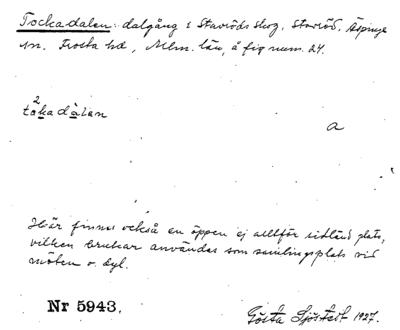 Tockadalen: dalgång i Stavröds skog, Stavröd, Äspinge
sn. Frosta hd, Mlm. län, å fig num. 24.
2
tòkadàlen
a
Här finnes också en öppen ej alltför sidländ plats,
vilken brukar användas som samlingsplats vid
möten o. dyl.
Nr 5943.
Gösta Sjöstedt 1927.